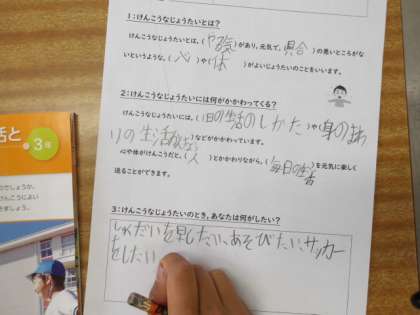 1：けんこうなじょうたいとは？
けんこうなじょうたいとは、(やる気)があり、元気で、(具合)の悪いところがな
いというような、(心)や(体)がよいじょうたいのことをいいます。
2：けんこうなじょうたいには何がかかわってくる？
けんこうなじょうたいには、(1日の生活のしかた)や(身のまわ
りの生活
)などがかかわっています。
心や体がけんこうだと、(人)とかかわりながら、(毎日の生活)を元気に楽しく
送ることができます。
3：けんこうなじょうたいのとき、あなたは何がしたい？
しゅくだいを早したい、あそびたい、サッカー
をしたい
活と
3年